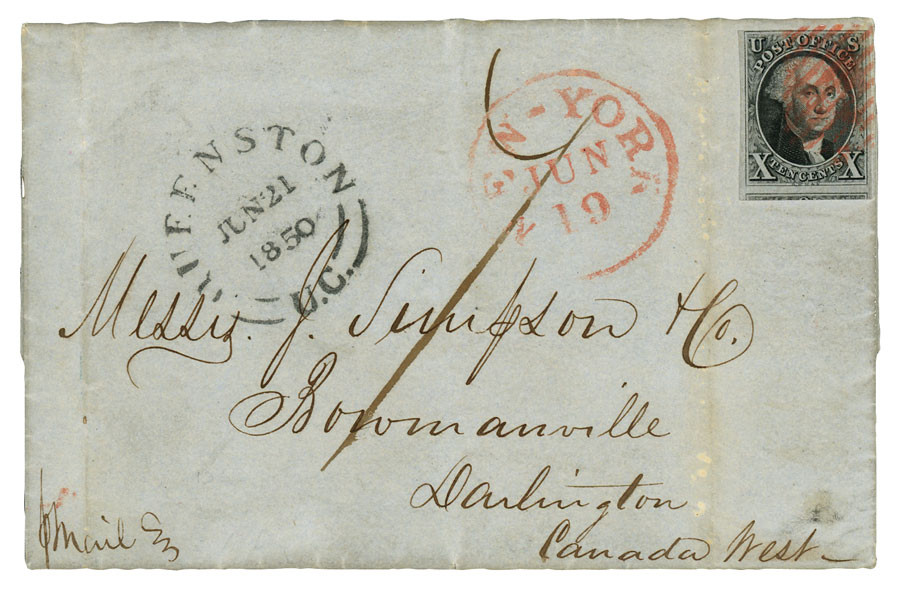 U S
POST OFFICE
X TEN CENTS X
NEW-YORK
JUN
19
QUEENSTON
JUN 21
1850
U.C.
Messrs. J. Simpson & Co.
Bowmanville
Darlington
Canada West
Mail